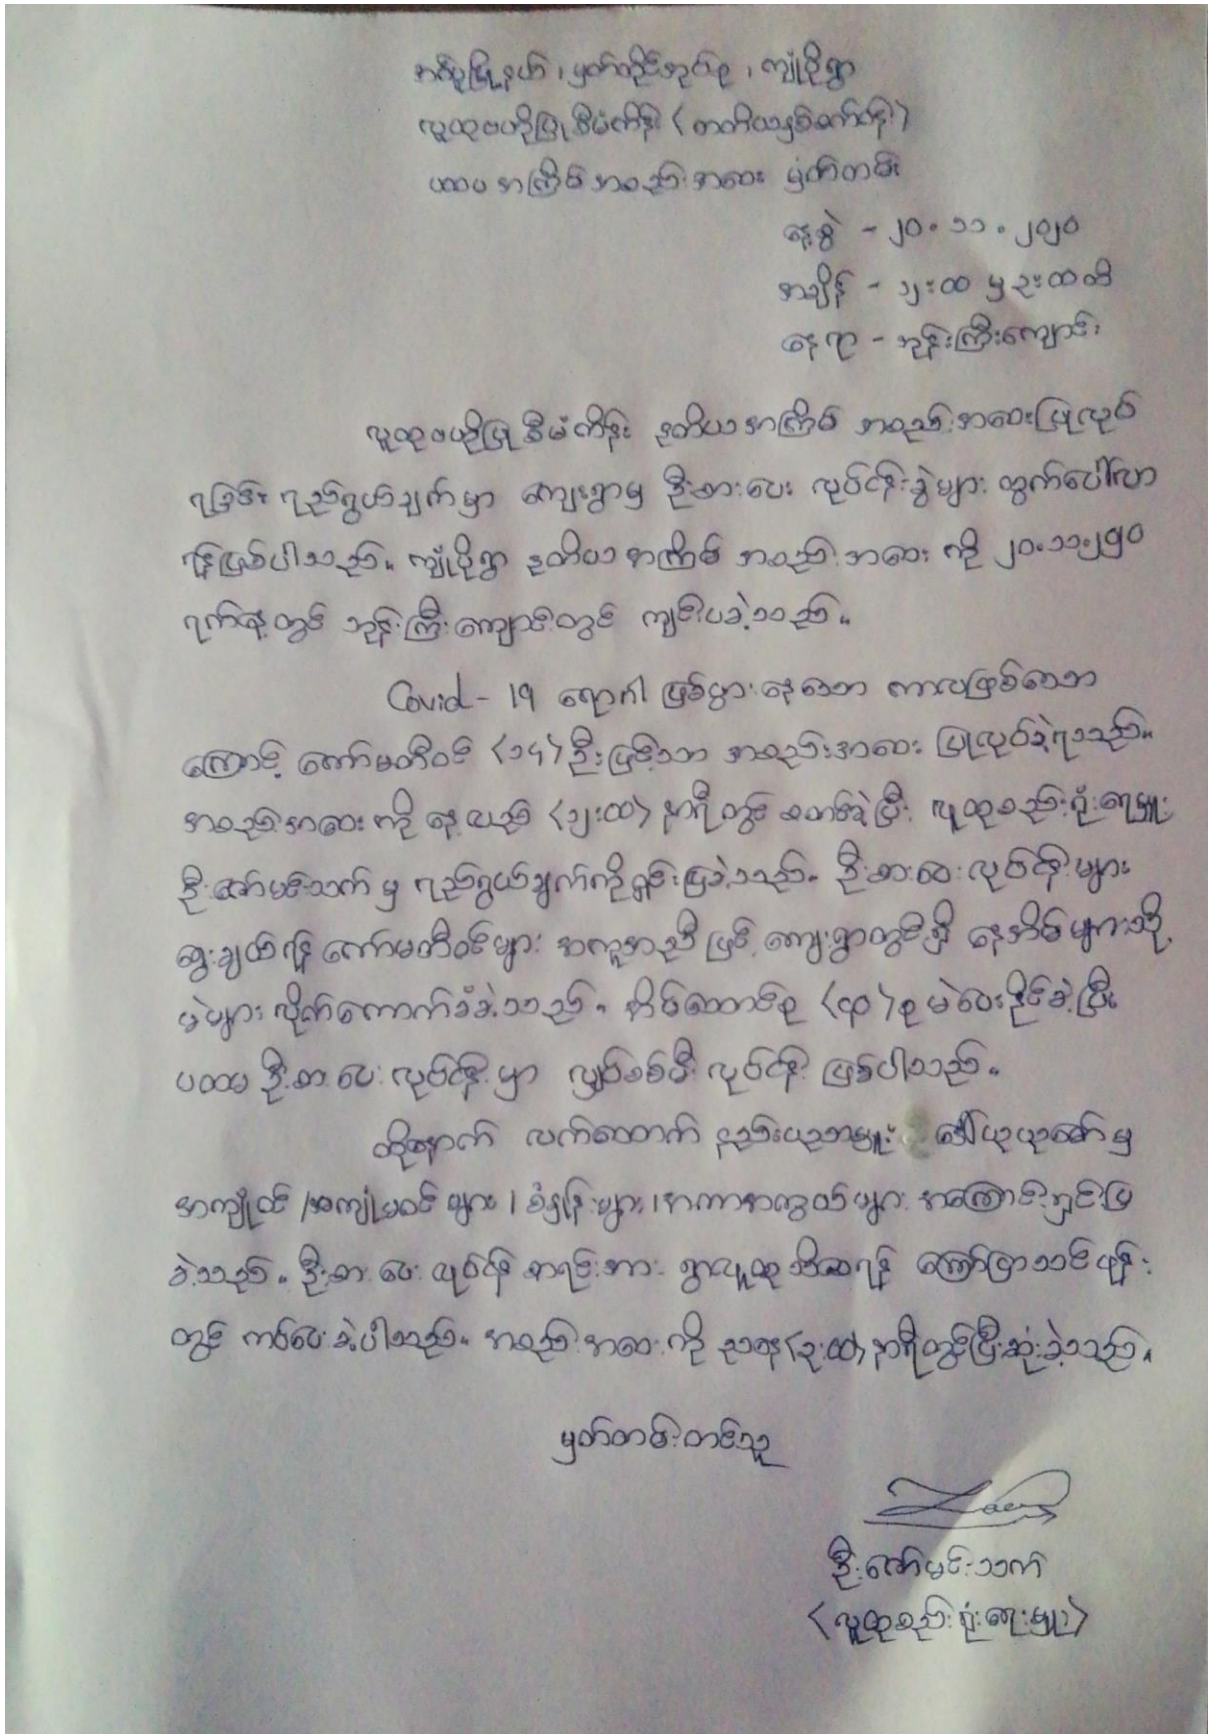 အင်္ဂပူမြို့နယ်၊ မှတ်တိုင်အုပ်စု၊ ကျုံစိုရွာ
လူထုဗဟိုပြုစီမံကိန်း (တတိယနှစ်စက်ဝန်း)
ပထမ အကြိမ် အစည်းအဝေး မှတ်တမ်း
နေ့စွဲ - ၂၀.၁၁.၂၀၂၀
အချိန် - ၁၂းထ မှ ၃းထ ထိ
နေရာ - ဘုန်းကြီးကျောင်း
လူထုဗဟိုပြုစီမံကိန်း ဒုတိယအကြိမ် အစည်းအဝေးပြုလုပ်
ရခြင်း ရည်ရွယ်ချက်မှာ ကျေးရွာမှ ဦးစားပေး လုပ်ငန်းခွဲများ ထွက်ပေါ်လာ
ရန်ဖြစ်ပါသည်။ ကျုံစိုရွာ ဒုတိယအကြိမ် အစည်းအဝေး ကို ၂၀.၁၁.၂၀၂၀
ရက်နေ့တွင် ဘုန်းကြီးကျောင်းတွင် ကျင်းပခဲ့သည်။
Covid-19 ရောဂါ ဖြစ်ပွားနေသော ကာလဖြစ်သော
ကြောင့် ကော်မတီဝင် (၁၄) ဦးဖြင့်သာ အစည်းအဝေး ပြုလုပ်ခဲ့ရသည်။
အစည်းအဝေး ကို နေ့လည် (၁၂းထ) နာရီတွင် စတင်ခဲ့ပြီး လူထုစည်းရုံးရေးမှူး
ဦးဇော်မင်းသက် မှ ရည်ရွယ်ချက်ကိုရှင်းပြခဲ့သည်။ ဦးစားပေးလုပ်ငန်းများ
ရွေးချယ်ရန် ကော်မတီဝင်များ အကူအညီဖြင့် ကျေးရွာတွင်းရှိ နေအိမ်များသို့
မဲများ လိုက်ကောက်ခံခဲ့သည်။ အိမ်ထောင်စု (၄၃) စု မဲပေးနိုင်ခဲ့ပြီး
ပထမ ဦးစားပေးလုပ်ငန်းမှာ လျှပ်စစ်မီးလုပ်ငန်း ဖြစ်ပါသည်။
ထို့နောက် လက်ထောက် နည်းပညာမှူး ဒေါ်ယုယုဇော် မှ
အကျုံးဝင် / အကျုံးမဝင် များ၊ စံနှုန်းများ၊ အကာအကွယ်များ အကြောင်းရှင်းပြ
ခဲ့သည်။ ဦးစားပေးလုပ်ငန်း စာရင်းအား ရွာလူထု သိစေရန် ကြော်ငြာသင်ပုန်း
တွင် ကပ်ပေးခဲ့ပါသည်။ အစည်းအဝေးကို ညနေ (၃းထ) နာရီတွင်ပြီးဆုံးခဲ့သည်။
မှတ်တမ်းတင်သူ
ဦးဇော်မင်းသက်
(လူထုစည်းရုံးရေးမှူး)